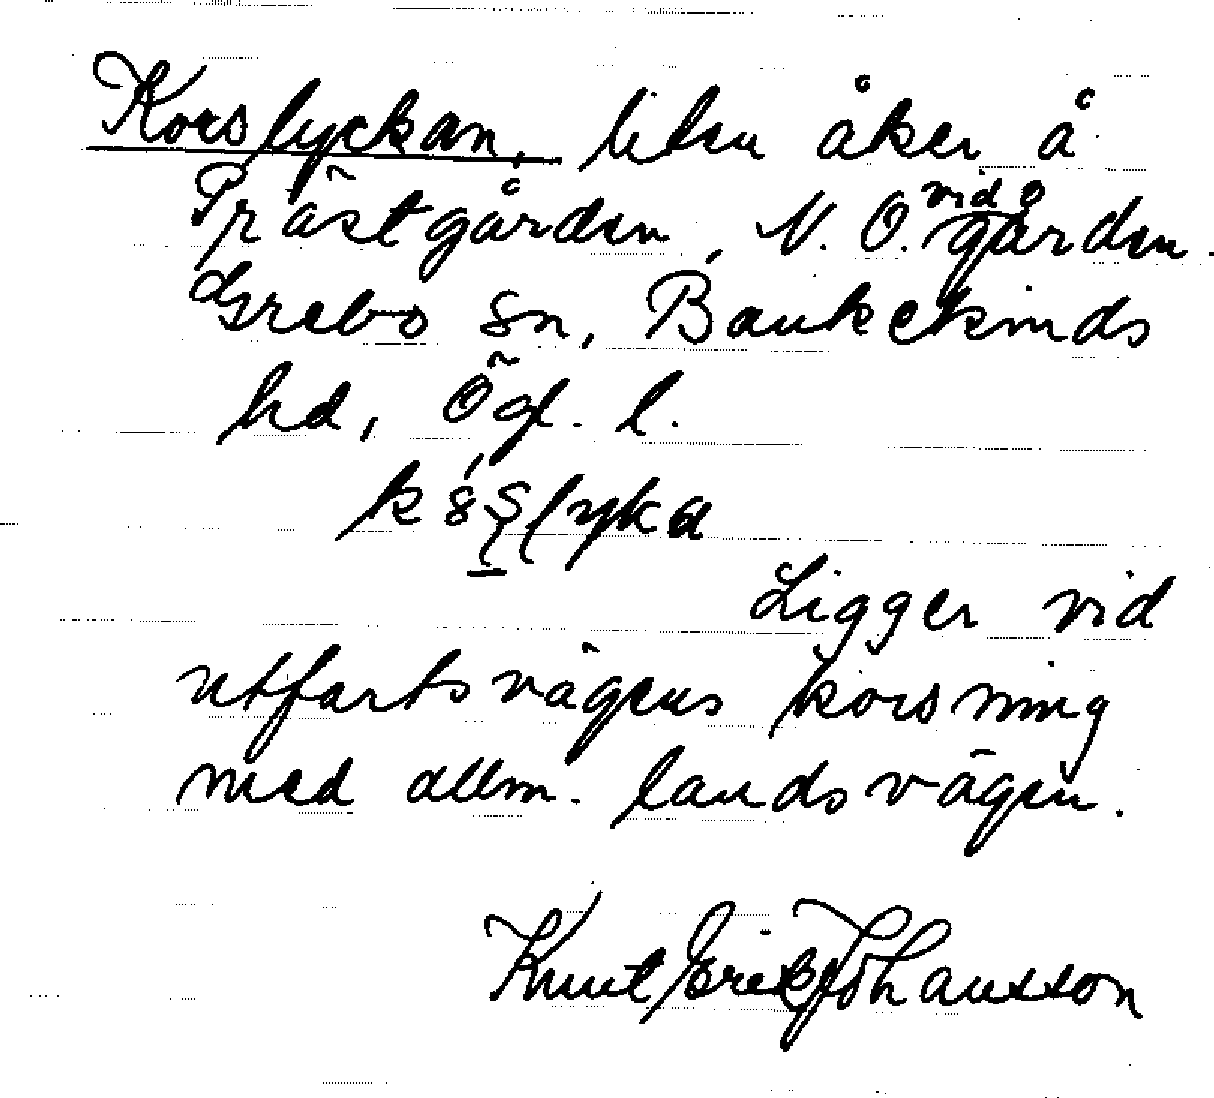 Korslyckan, liten åker å
Prästgården, N.O. vid gården.
Grebo sn, Bankekinds
hd, Ögl. l.
Ligger vid
utfartsvägens korsning
med allm. landsvägen.
Knut Erik Johansson